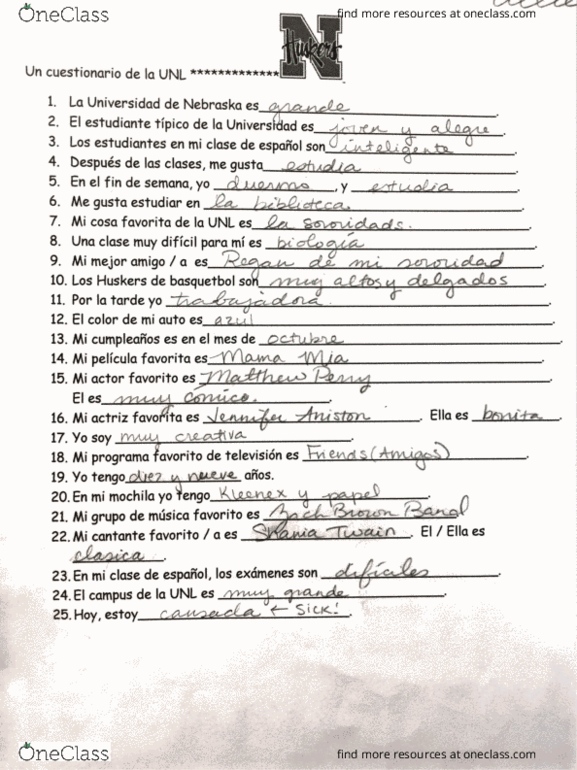 OneClass
find more resources at oneclass.com
N
Huskers
Un cuestionario de la UNL *************
1. La Universidad de Nebraska es grande.
2. El estudiante típico de la Universidad es joven y alegre.
3. Los estudiantes en mi clase de español son inteligente.
4. Después de las clases, me gusta estudia.
5. En el fin de semana, yo duermo, y estudia.
6. Me gusta estudiar en la biblioteca.
7. Mi cosa favorita de la UNL es la sororidads.
8. Una clase muy difícil para mí es biología.
9. Mi mejor amigo / a es Regan de mi sororidad
10. Los Huskers de basquetbol son muy altos y delgados
11. Por la tarde yo trabajadora.
12. El color de mi auto es azul.
13. Mi cumpleaños es en el mes de octubre.
14. Mi película favorita es Mama Mia.
15. Mi actor favorito es Matthew Perry
El es muy cómico.
16. Mi actriz favorita es Jennifer Aniston. Ella es bonita.
17. Yo soy muy creativa.
18. Mi programa favorito de televisión es Friends (Amigos).
19. Yo tengo diez y nueve años.
20. En mi mochila yo tengo Kleenex y papel.
21. Mi grupo de música favorito es Zach Brown Band
22. Mi cantante favorito / a es Shania Twain. El / Ella es
clasica.
23. En mi clase de español, los exámenes son difíciles.
24. El campus de la UNL es muy grande.
25. Hoy, estoy causada ← Sick!.
OneClass
find more resources at oneclass.com